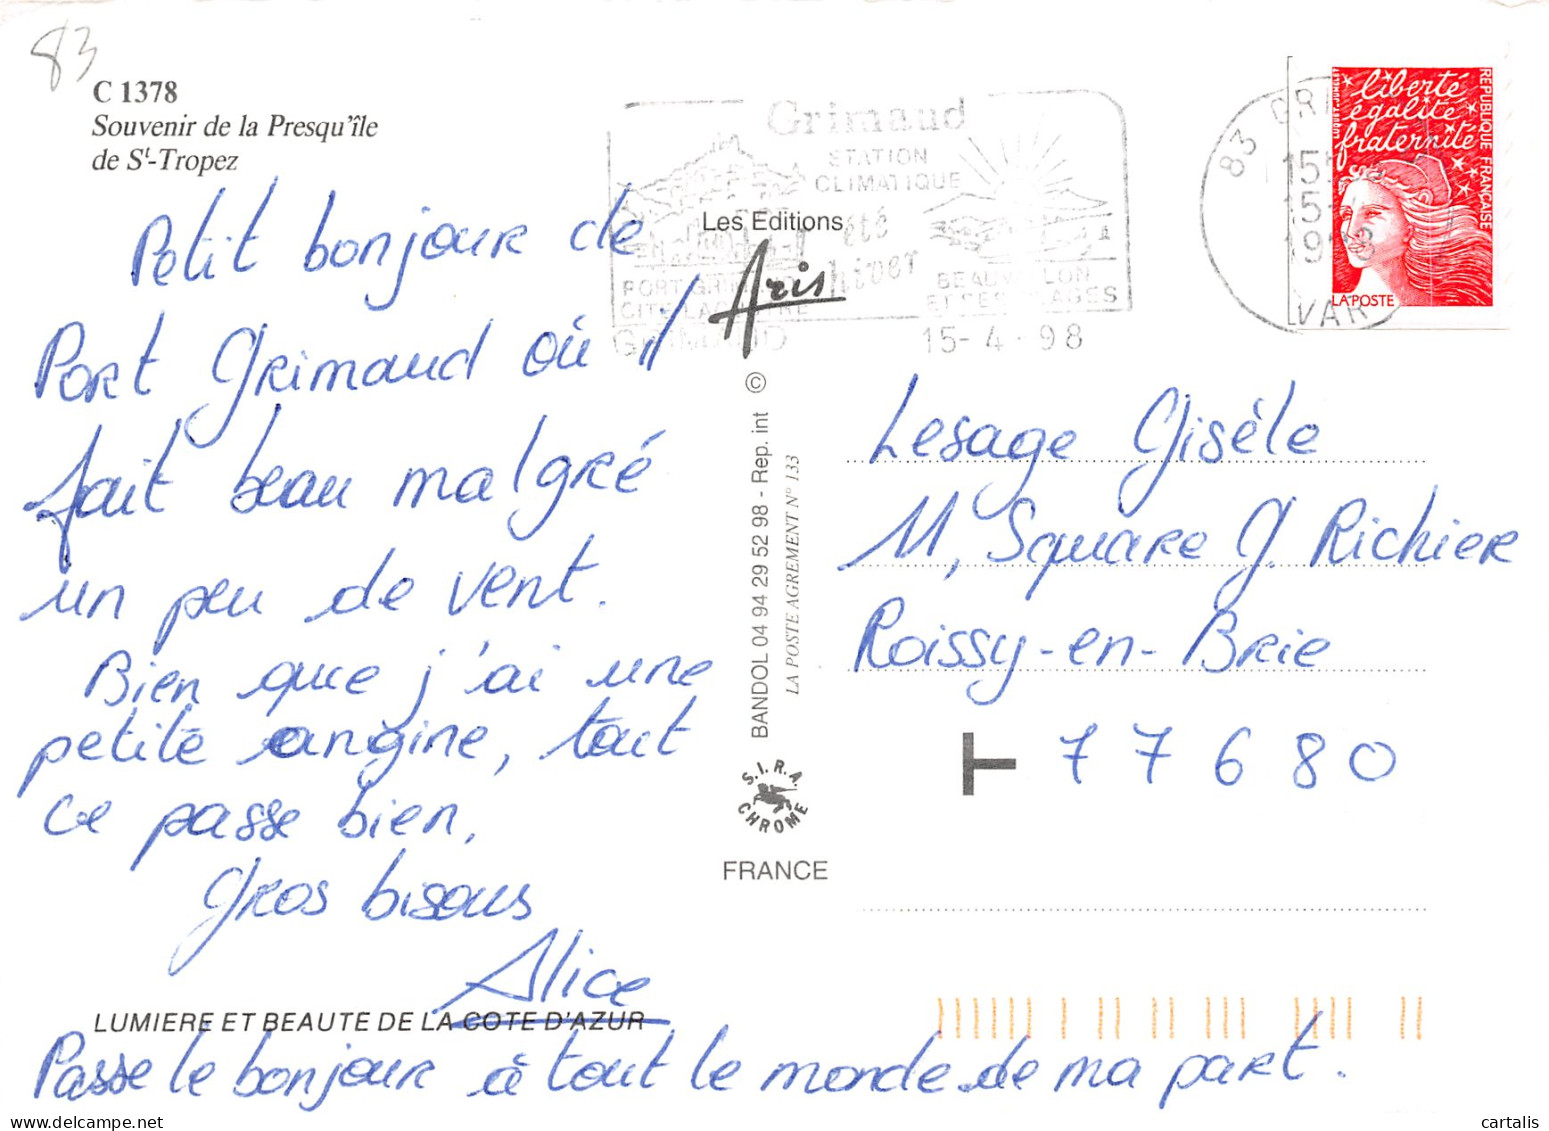 83
C 1378
Souvenir de la Presqu'île
de St-Tropez
Petit bonjour de
Port Grimaud où il
fait beau malgré
un peu de vent.
Bien que j'ai une
petite angine, tout
ce passe bien,
Gros bisous
Alice
LUMIERE ET BEAUTE DE LA COTE D'AZUR
Passe le bonjour à tout le monde de ma part.
Grimaud
STATION
CLIMATIQUE
été
hiver
PORT GRIMAUD
CITE LACUSTRE
BEAUVALLON
ET SES PLAGES
GRIMAUD
15-4-98
Les Editions
Aris
BANDOL 04 94 29 52 98 - Rep. int ©
LA POSTE AGREMENT N° 133
S.I.R.A.
CHROME
FRANCE
83 GRI
15
15-
1998
VAR
liberté
égalité
fraternité
REPUBLIQUE FRANÇAISE
LA POSTE
Lesage Gisèle
11, Square G. Richier
Roissy-en-Brie
77680
cartalis